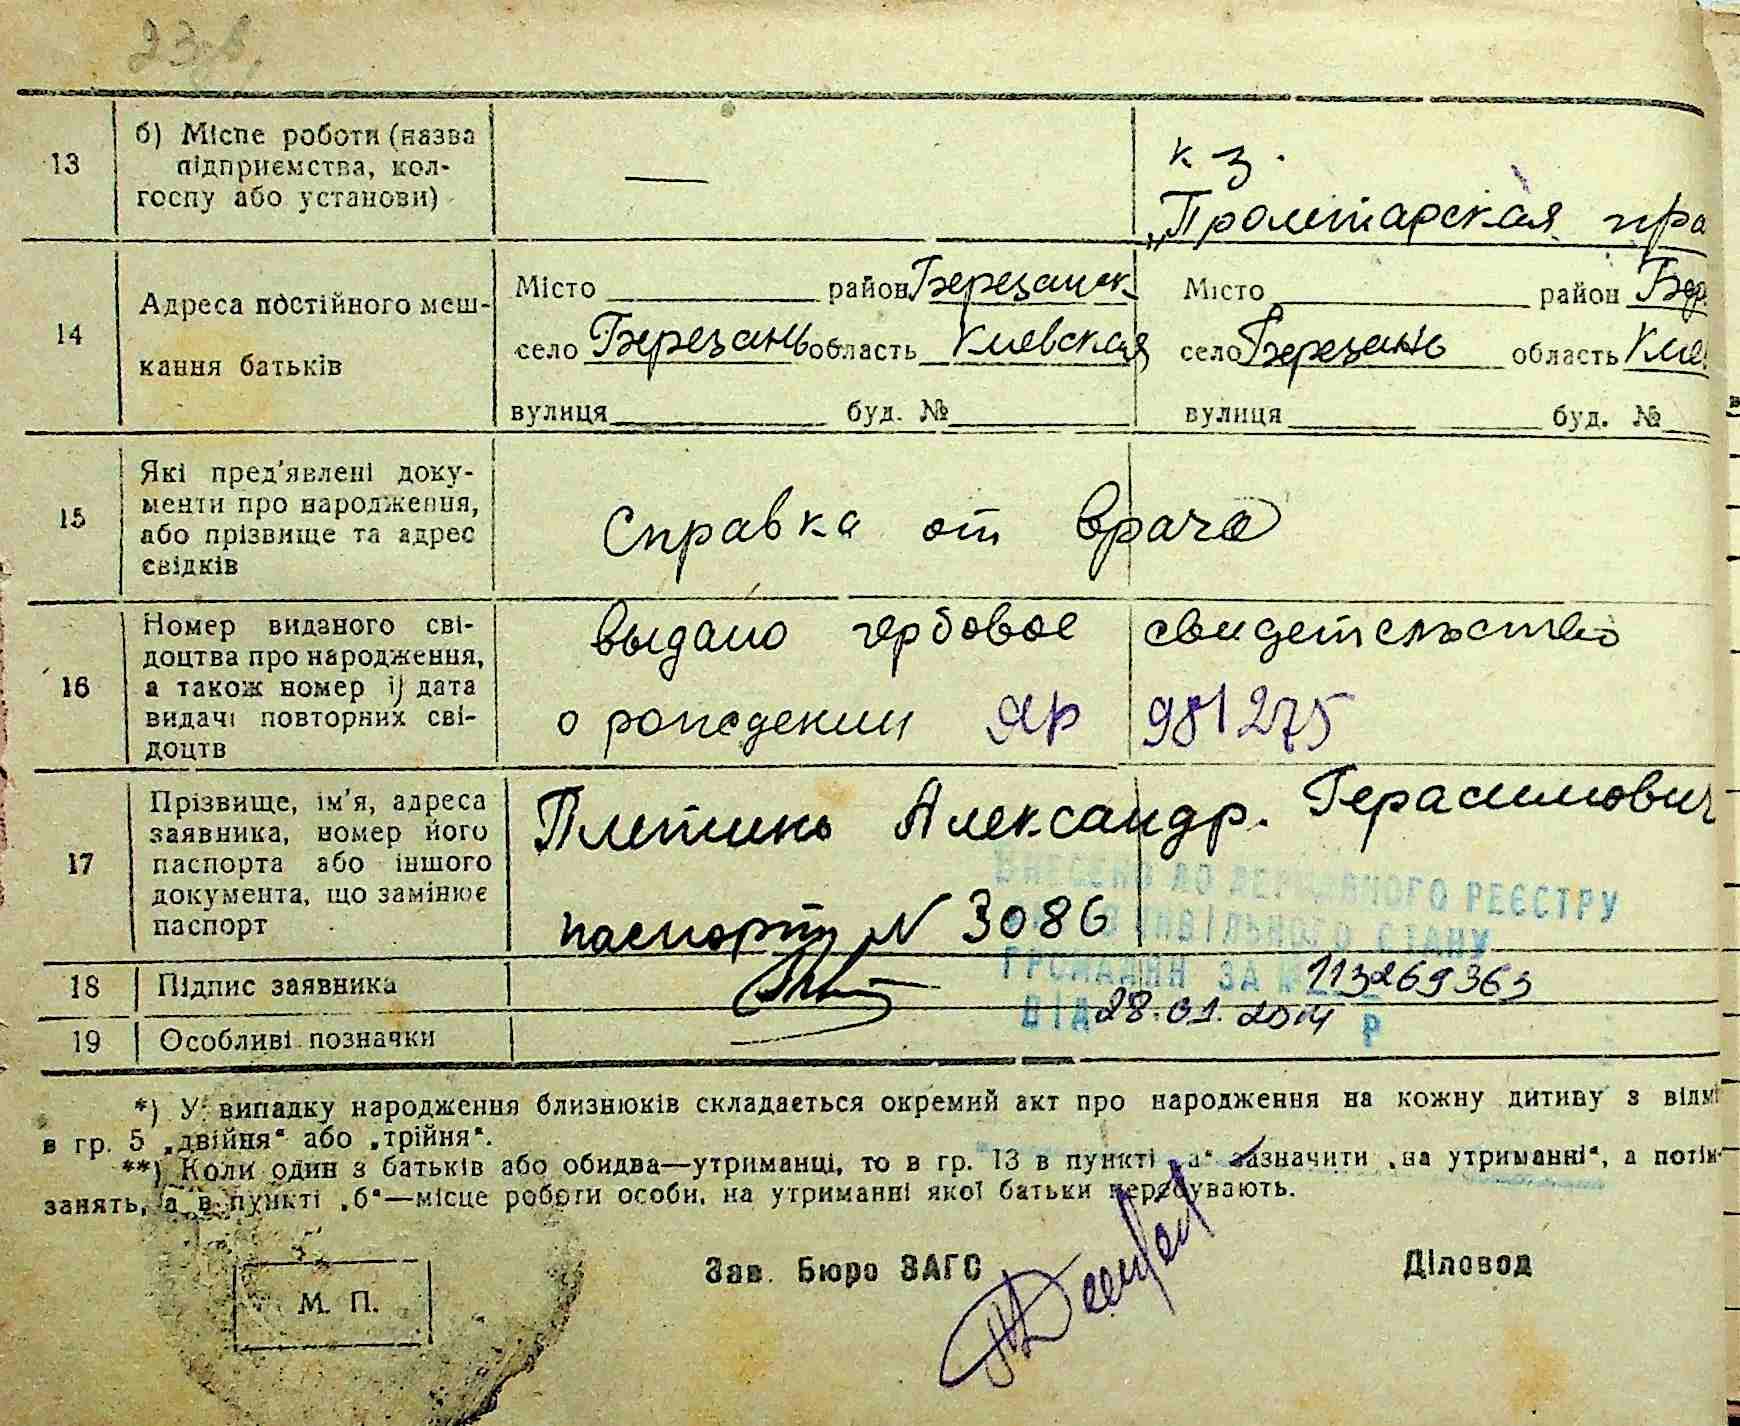 13
б) Місце роботи (назва
підприємства, кол-
госпу або установи)
—
к з.
„Пролетарская пра
14
Адреса постійного меш-
кання батьків
Місто район Березанск
село Березань область Киевская
вулиця буд. №
Місто район Бер
село Березань область Кие
вулиця буд. №
15
Які пред'явлені доку-
менти про народження,
або прізвище та адрес
свідків
Справка от врача
16
Номер виданого сві-
доцтва про народження,
а також номер і дата
видачі повторних сві-
доцтв
выдано гербовое свидетельство
о рождении ЯР 981275
17
Прізвище, ім'я, адреса
заявника, номер його
паспорта або іншого
документа, що замінює
паспорт
Плетинь Александр. Герасимович
паспорт N 3086
ВНЕСЕНО ДО ДЕРЖАВНОГО РЕЄСТРУ
ЦИВІЛЬНОГО СТАНУ
ГРОМАДЯН ЗА № 113269363
ВІД 28.01.2014 Р
18
Підпис заявника
19
Особливі позначки
—
*) У випадку народження близнюків складається окремий акт про народження на кожну дитину з відмі
в гр. 5 „двійня“ або „трійня“.
**) Коли один з батьків або обидва—утриманці, то в гр. 13 в пункті „а“ зазначити „на утриманні“, а потім
занять, а в пункті „б“—місце роботи особи, на утриманні якої батьки перебувають.
М. П.
Зав. Бюро ЗАГС
Діловод